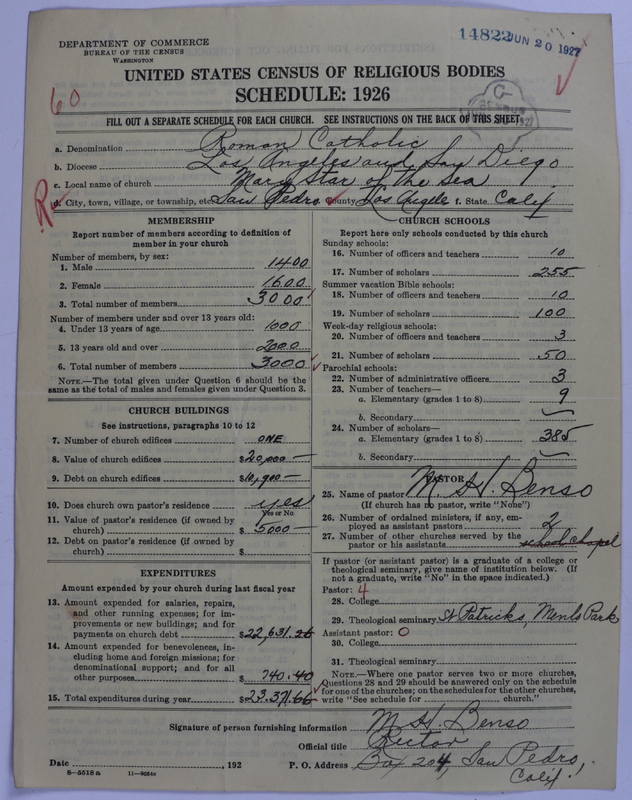 DEPARTMENT OF COMMERCE
BUREAU OF THE CENSUS
WASHINGTON
14822 JUN 20 1927
UNITED STATES CENSUS OF RELIGIOUS BODIES
SCHEDULE: 1926
60
FILL OUT A SEPARATE SCHEDULE FOR EACH CHURCH. SEE INSTRUCTIONS ON THE BACK OF THIS SHEET
a. Denomination Roman Catholic
b. Diocese Los Angeles and San Diego
c. Local name of church Mary Star of the Sea
d. City, town, village, or township, etc. San Pedro e. County Los Angeles f. State Calif
R
MEMBERSHIP
Report number of members according to definition of
member in your church
Number of members, by sex:
1. Male 1400
2. Female 1600
3. Total number of members 3000
Number of members under and over 13 years old:
4. Under 13 years of age 1000
5. 13 years old and over 2000
6. Total number of members 3000
NOTE.—The total given under Question 6 should be the
same as the total of males and females given under Question 3.
CHURCH BUILDINGS
See instructions, paragraphs 10 to 12
7. Number of church edifices ONE
8. Value of church edifices $20,000—
9. Debt on church edifices $10,900—
10. Does church own pastor's residence yes
Yes or No
11. Value of pastor's residence (if owned by
church) $5000—
12. Debt on pastor's residence (if owned by
church) $
EXPENDITURES
Amount expended by your church during last fiscal year
13. Amount expended for salaries, repairs,
and other running expenses; for im-
provements or new buildings; and for
payments on church debt $22,631.26
14. Amount expended for benevolences, in-
cluding home and foreign missions; for
denominational support; and for all
other purposes $740.40
15. Total expenditures during year $23.371.66
CHURCH SCHOOLS
Report here only schools conducted by this church
Sunday schools:
16. Number of officers and teachers 10
17. Number of scholars 255
Summer vacation Bible schools:
18. Number of officers and teachers 10
19. Number of scholars 100
Week-day religious schools:
20. Number of officers and teachers 3
21. Number of scholars 50
Parochial schools:
22. Number of administrative officers 3
23. Number of teachers—
a. Elementary (grades 1 to 8) 9
b. Secondary
24. Number of scholars—
a. Elementary (grades 1 to 8) 385
b. Secondary
PASTOR
25. Name of pastor M. H. Benso
(If church has no pastor, write "None")
26. Number of ordained ministers, if any, em-
ployed as assistant pastors 2
27. Number of other churches served by the
pastor or his assistants school chapel
If pastor (or assistant pastor) is a graduate of a college or
theological seminary, give name of institution below. (If
not a graduate, write "No" in the space indicated.)
Pastor: 4
28. College
29. Theological seminary St Patricks, Menlo Park
Assistant pastor: 0
30. College
31. Theological seminary
NOTE.—Where one pastor serves two or more churches,
Questions 28 and 29 should be answered only on the schedule
for one of the churches; on the schedules for the other churches,
write "See schedule for church."
Signature of person furnishing information M. H. Benso
Official title Rector
Date , 192 P. O. Address Box 204, San Pedro,
Calif.
8—5518a 11—9054a